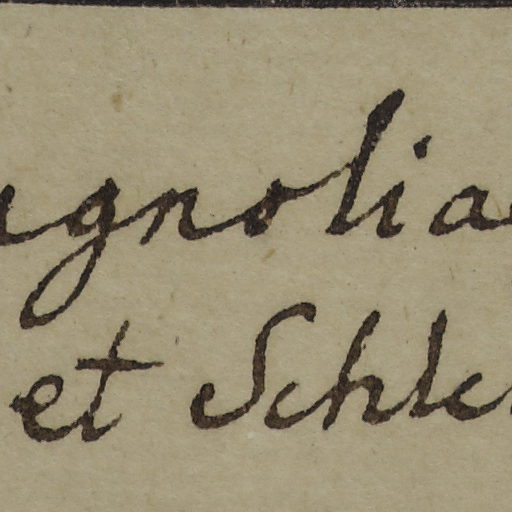 agnoliae
et Schle